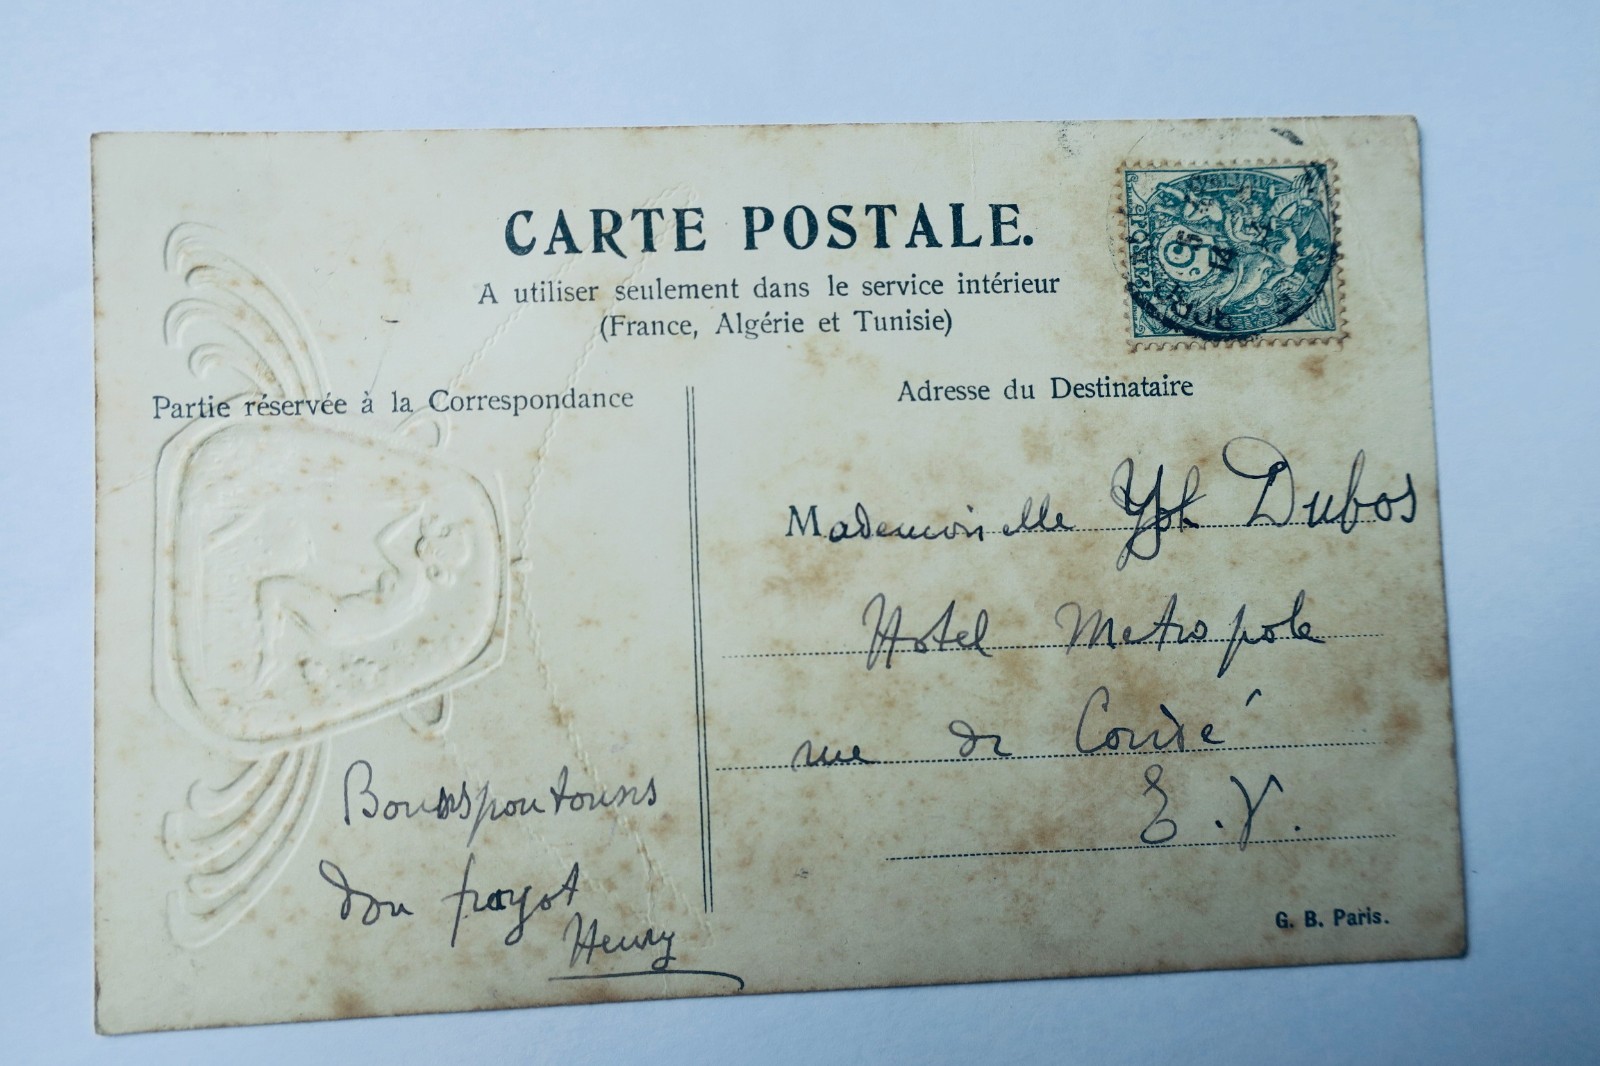 CARTE POSTALE.
A utiliser seulement dans le service intérieur
(France, Algérie et Tunisie)
Partie réservée à la Correspondance
Adresse du Destinataire
Mademoiselle Yol Dubos
Hotel Metropole
rue de Condé
E. V.
Henry
G. B. Paris.
5
POSTES